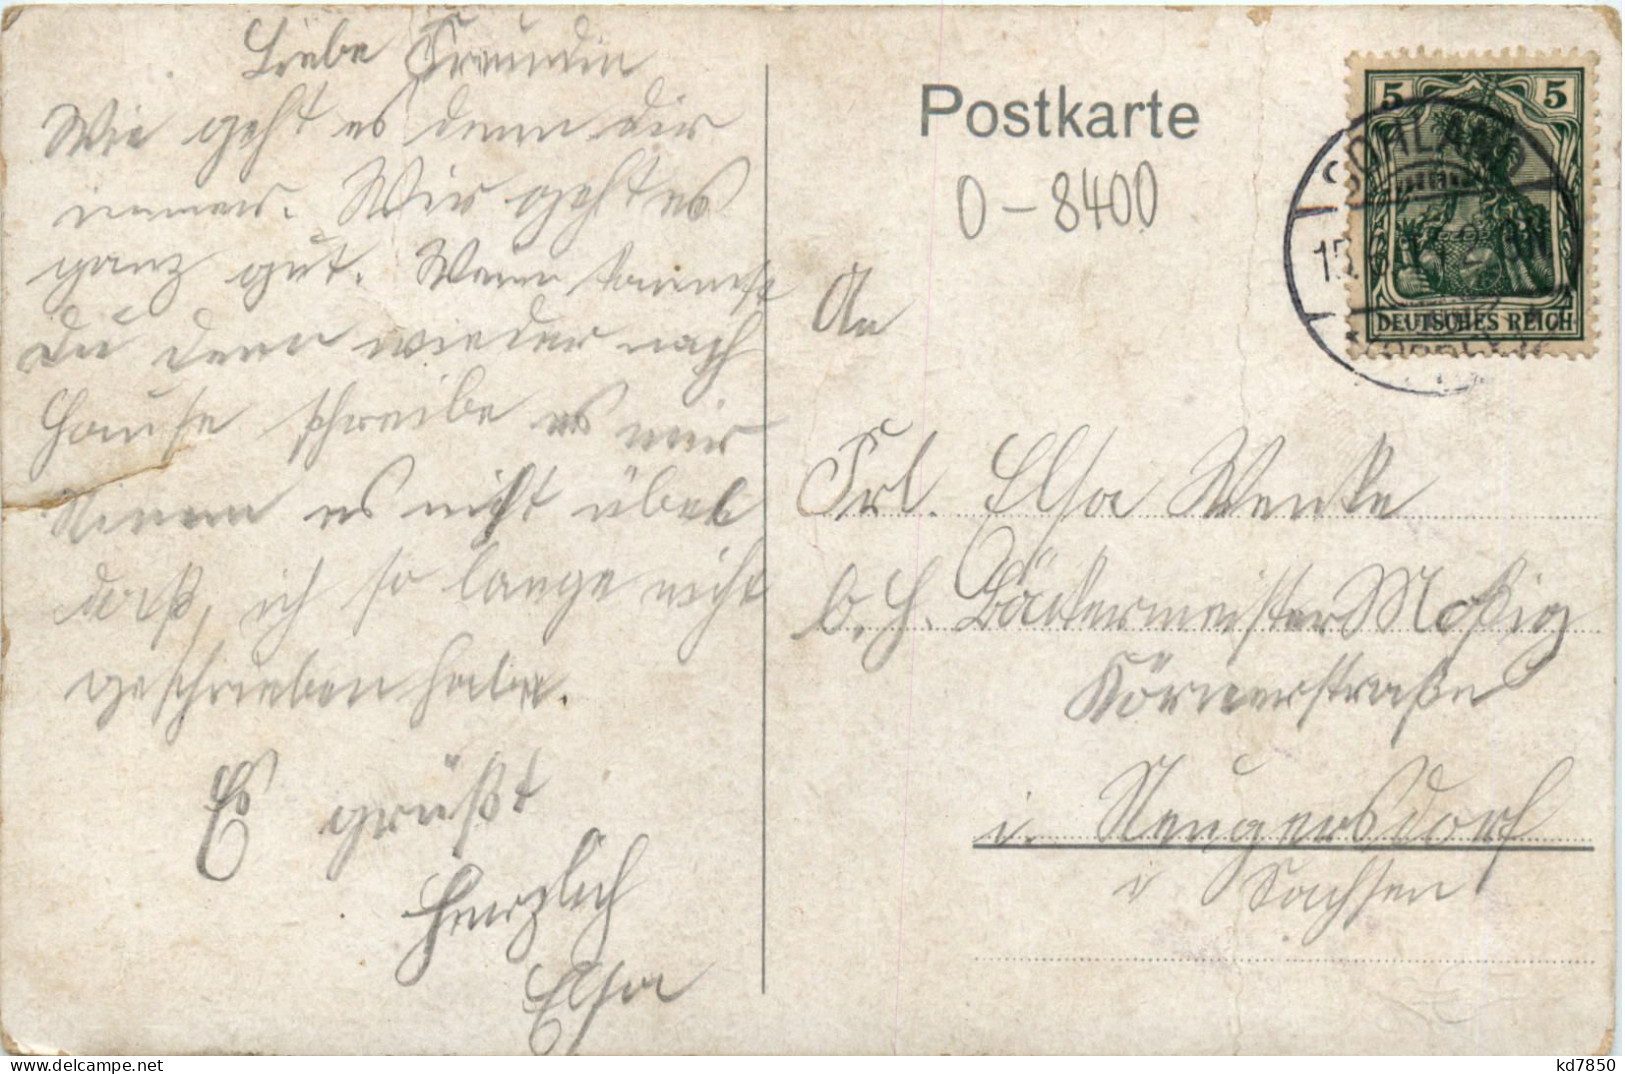 Liebe Freundin
Wie geht es denn dir
immer. Wir geht es
ganz gut. Wenn kommst
Du denn wieder nach
Hause schreibe es mir
Nimm es nicht übel
daß, ich so lange nicht
geschrieben habe.
Es grüßt
Herzlich
Elsa
Postkarte
0-8400
5 5
DEUTSCHES REICH
SOHLAND
An
Frl. Elsa Wenke
b. H. Bäckermeister Moßig
Körnerstraße
i. Neugersdorf
i Sachsen
kd7850